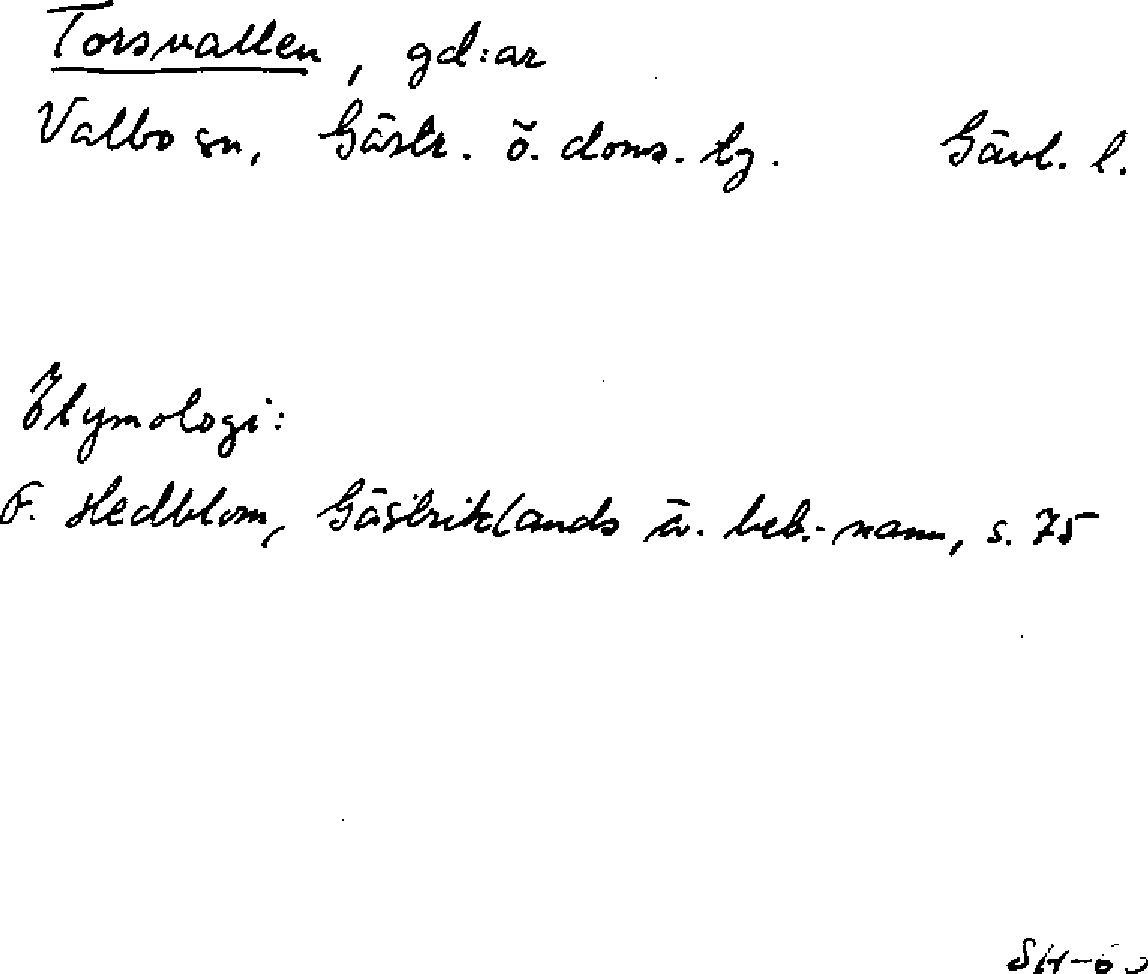 Torsvallen, gd:ar
Valbo sn, Gästr. ö. doms. tg. Gävl. l.
Etymologi:
F. Hedblom, Gästriklands ä. beb.-namn, s. 75